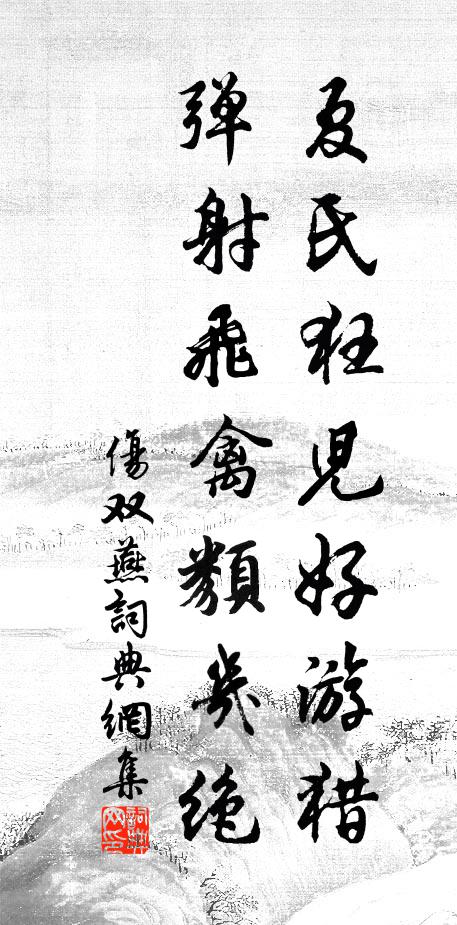 夏氏狂児好游猎
弹射飛禽類㡬绝
傷双燕詞典網集
詞典网印